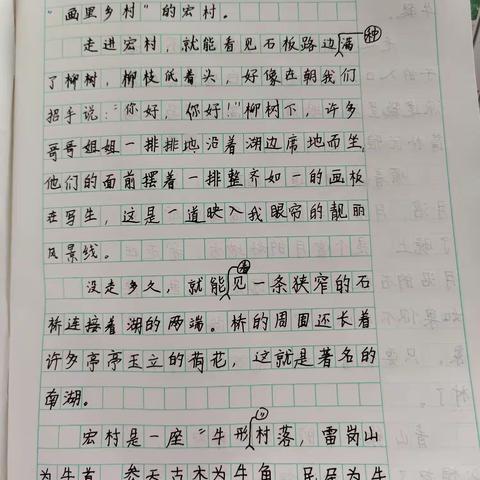 “画里乡村”的宏村。
走进宏村，就能看见石板路边种满
了柳树，柳枝低着头，好像在朝我们
招手说：“你好，你好！”柳树下，许多
哥哥姐姐一排排地沿着湖边席地而坐，
他们的面前摆着一排整齐如一的画板
在写生，这是一道映入我眼帘的靓丽
风景线。
没走多久，就能看见一条狭窄的石
桥连接着湖的两端。桥的周围还长着
许多亭亭玉立的荷花，这就是著名的
南湖。
宏村是一座“牛形”村落，雷岗山
为牛首，参天古木为牛角，民居为牛